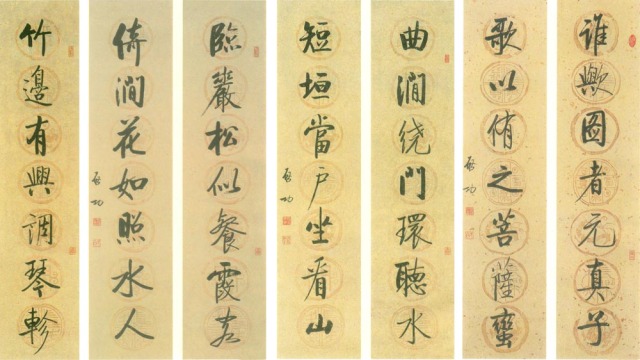 誰歟圖者元真子
歌以侑之菩薩蠻
启功
曲澗绕門環聽水
短垣當户坐看山
启功
臨巖松似餐霞客
倚澗花如照水人
启功
竹邊有興調琴軫